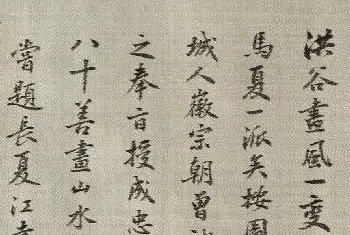 洪谷畫風一變
馬夏一派矣按圖
城人徽宗朝曾
之奉旨授成忠
八十善畫山水
嘗題長夏江寺